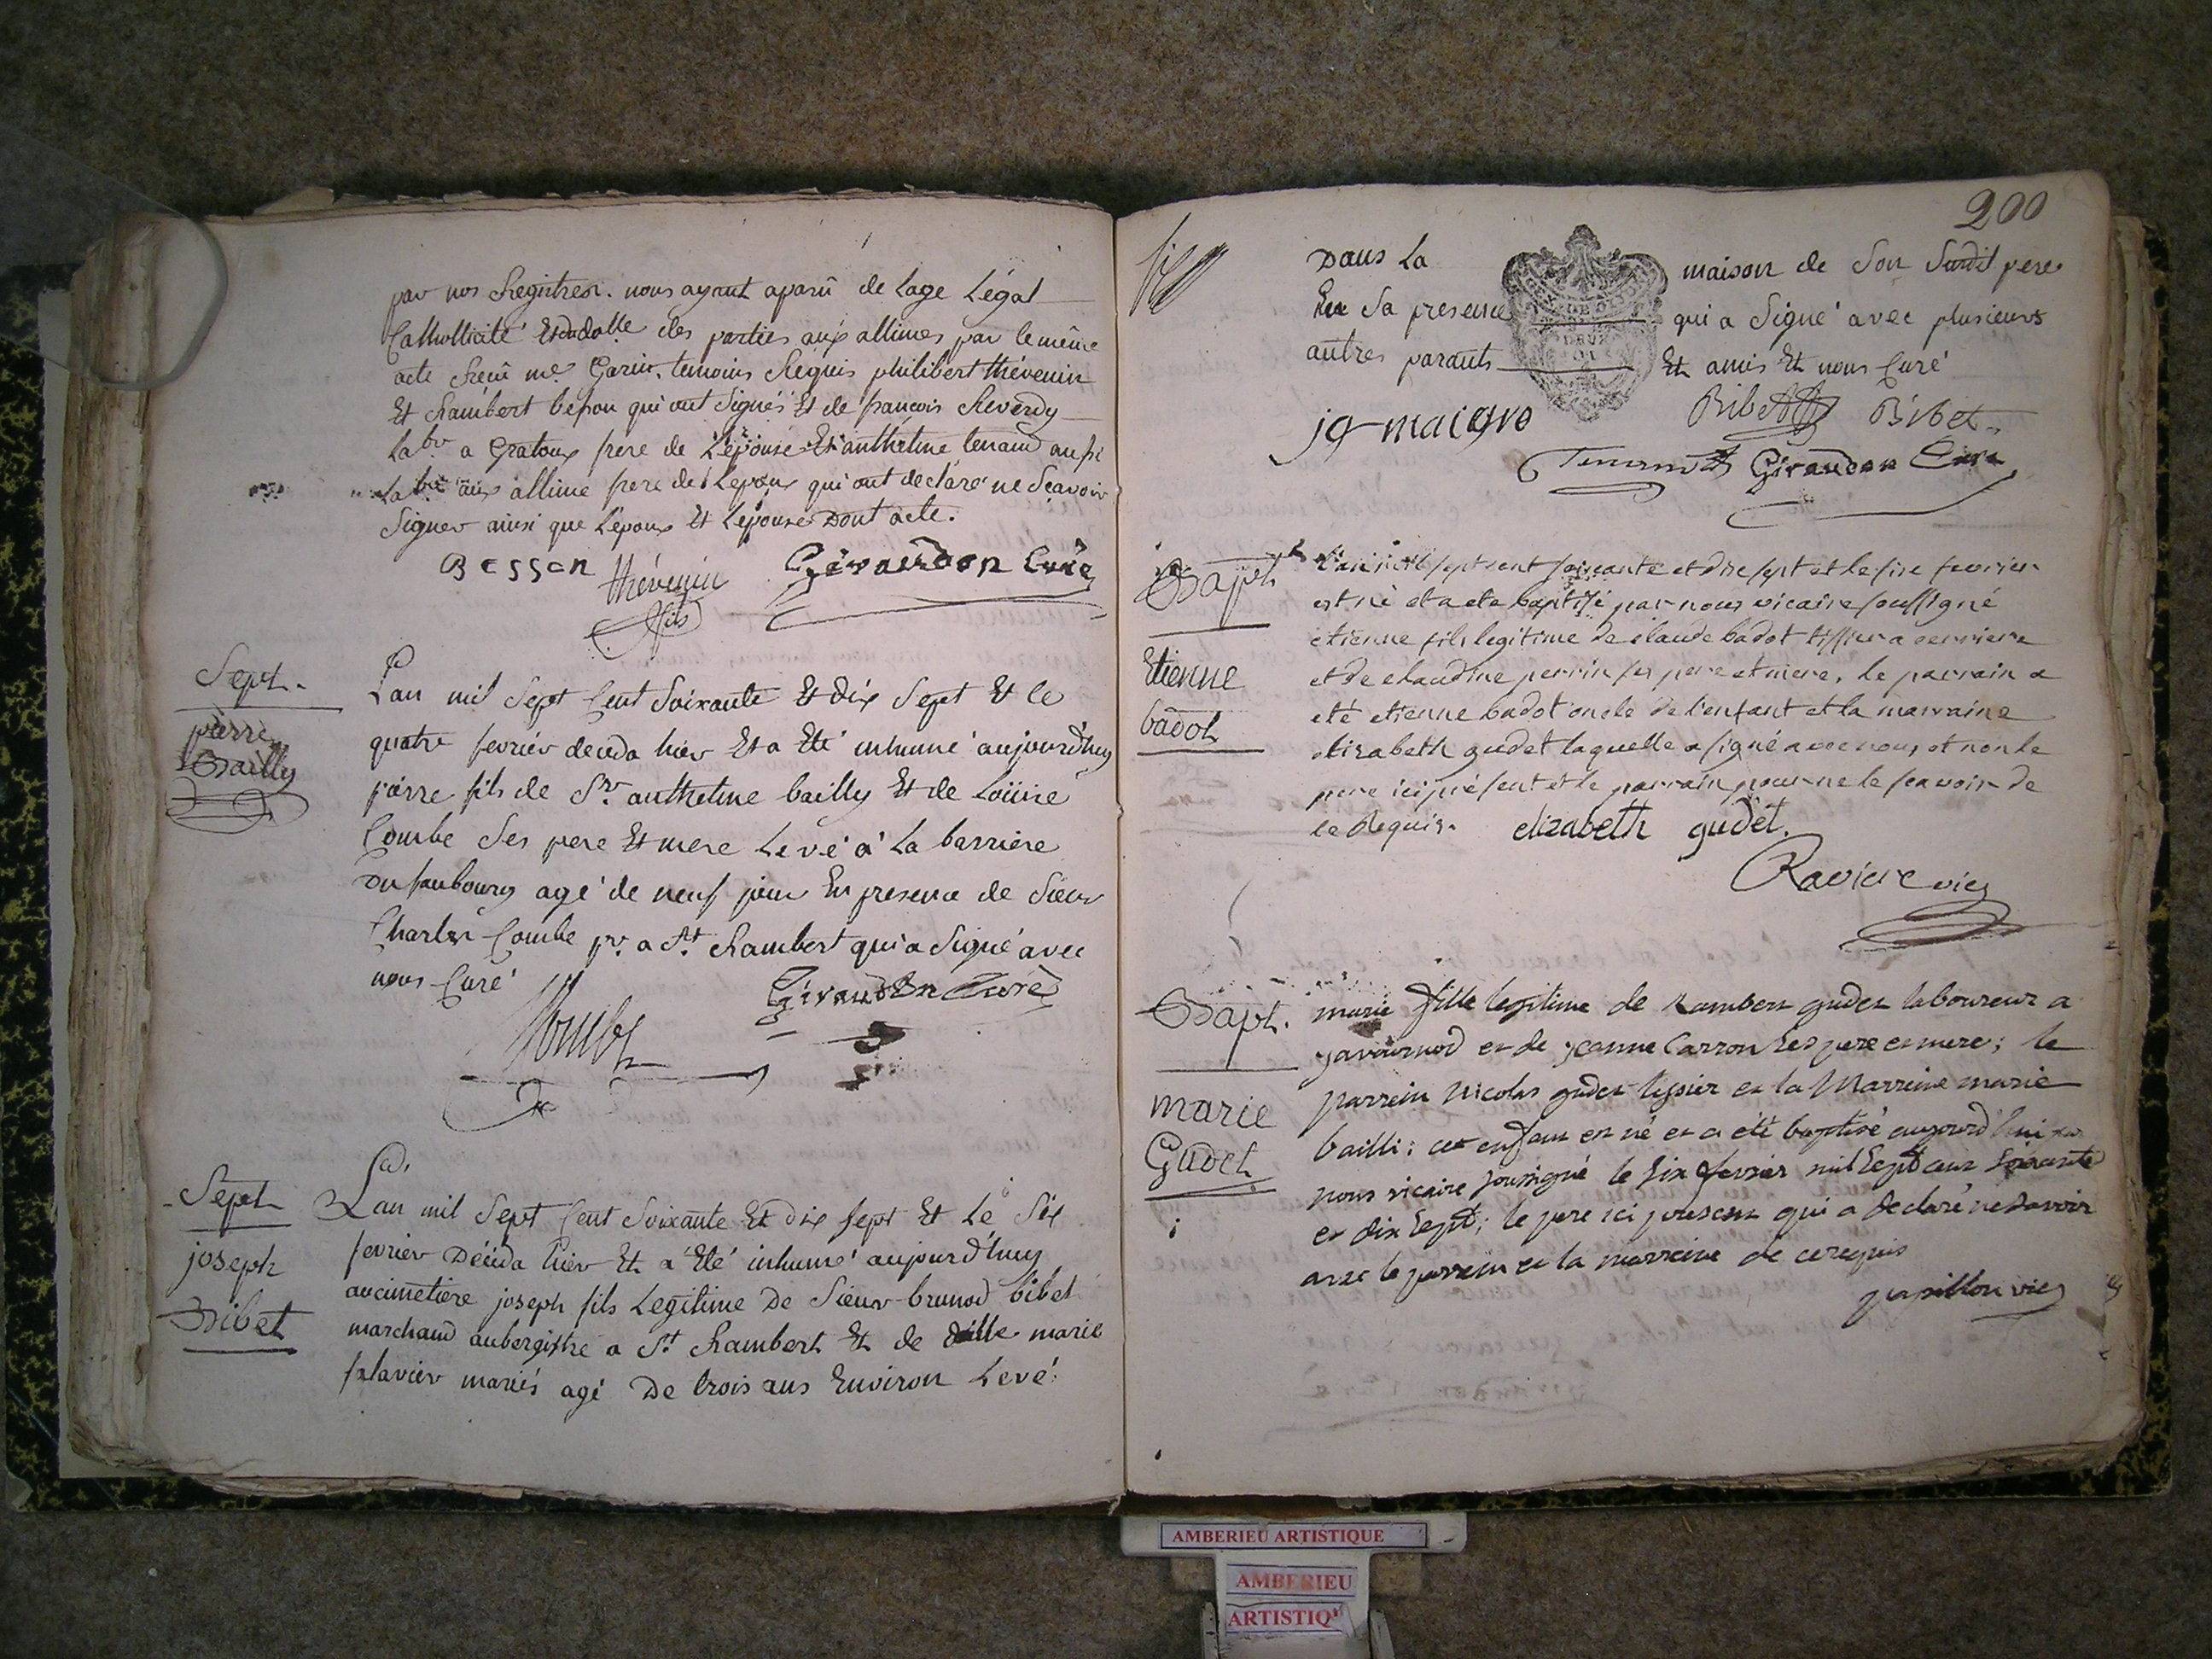 par nos Registres. nous ayant aparû de lage Légal
Catholicité Et dalle des parties aux allimes par le même
acte Receû me. Garin. temoins Requis philibert thévenin
Et Rambert beson qui ont Signés Et de françois Reverdy
labr. a Gratoux frere de L'épouse Et anthelme tenand aussi
labr. aux allime frere de Lepoux qui ont declaré ne Scavoir
Signer ainsi que L'epoux Et Lepouse Dont acte.
Besson thévenin fils Giraudon Curé
Sept.
pierre
Bailly
Lan mil Sept Cent Soixante Et dix Sept Et le
quatre fevrièr deceda hièr Et a Eté inhumé aujourd'huy
pièrre fils de Sr. anthelme bailly Et de Loüise
Combe Ses pere Et mere Levé a La barrière
Du faubourg agé de neuf jour En presence de Sieur
Charles Combe pr. a St. Rambert qui a Signé avec
nous Curé
Combe
Giraudon Curé
Sept
joseph
Bibet
Lan mil Sept Cent Soixante Et dix Sept Et Le Six
fevrier Déceda hièr Et a Eté inhumé aujourd'huy
au cimetière joseph fils Legitime De Sieur brunod bibet
marchand aubergiste a St. Rambert Et de dlle marie
falavier mariés agé De trois ans Environ Levé
200
Dans La maison de Son Susdit pere
En Sa presence qui a Signé avec plusieurs
autres parants Et amis Et nous Curé
jg maigre Bibet Bibet
Tenand Giraudon Curé
Bapt
Etienne
badot
L'an mil sept cent soixante et dix sept et le six fevrier
est né et a eté baptisé par nous vicaire soussigné
etienne fils legitime de claude badot tissier a serriere
et de claudine perrin ses pere et mere. le parrain a
eté etienne badot oncle de l'enfant et la marraine
elizabeth gudet laquelle a signé avec nous et non le
pere ici présent et le parrain pour ne le scavoir de
ce Requis. elizabeth gudet.
Raviere vic
Bapt.
marie
Gudet
marie fille legitime de Rambert gudet laboureur a
javornod et de jeanne Carron Ses pere et mere; le
parrein Nicolas gudet tissier et la Marreine marie
bailli: cet enfant est né et a été baptisé aujourd'hui par
nous vicaire soussigné le six fevrier mil Sept cent soixante
et dix Sept; le pere ici present qui a declaré ne Savoir
avec le parrein et la marreine de ce requis
papillon vic
AMBERIEU ARTISTIQUE
AMBERIEU
ARTISTIQ